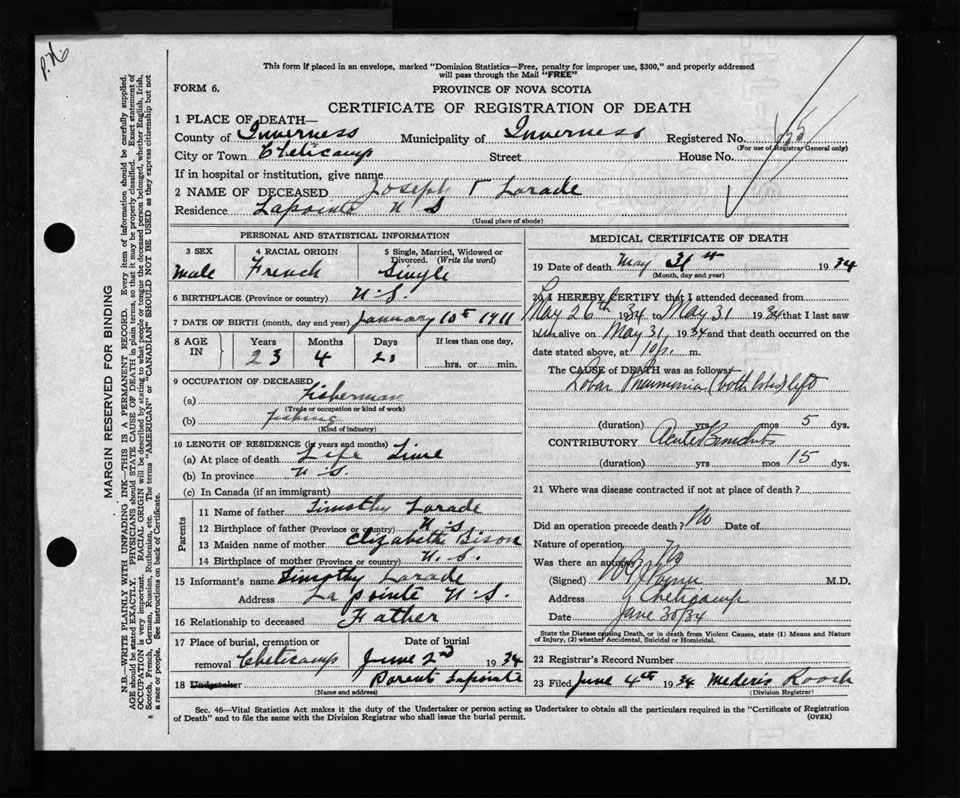 P.N.
This form if placed in an envelope, marked "Dominion Statistics—Free, penalty for improper use, $300," and properly addressed
will pass through the Mail "FREE"
FORM 6.
PROVINCE OF NOVA SCOTIA
CERTIFICATE OF REGISTRATION OF DEATH
1 PLACE OF DEATH—
County of Inverness Municipality of Inverness Registered No.
(For use of Registrar General only)
City or Town Cheticamp Street House No.
If in hospital or institution, give name
2 NAME OF DECEASED Joseph T Larade
Residence Lapointe N S
(Usual place of abode)
PERSONAL AND STATISTICAL INFORMATION
3 SEX 4 RACIAL ORIGIN 5 Single, Married, Widowed or
Divorced. (Write the word)
Male French Single
6 BIRTHPLACE (Province or country) N.S.
7 DATE OF BIRTH (month, day and year) January 10th 1911
8 AGE IN Years Months Days If less than one day,
23 4 21 hrs. or min.
9 OCCUPATION OF DECEASED
(a) Fisherman
(Trade or occupation or kind of work)
(b) fishing
(Kind of industry)
10 LENGTH OF RESIDENCE (in years and months)
(a) At place of death Life Time
(b) In province N.S.
(c) In Canada (if an immigrant)
Parents
11 Name of father Timothy Larade
12 Birthplace of father (Province or country) N S
13 Maiden name of mother Elizabeth Bison
14 Birthplace of mother (Province or country) N.S.
15 Informant's name Timothy Larade
Address Lapointe N.S.
16 Relationship to deceased Father
17 Place of burial, cremation or Date of burial
removal Cheticamp June 2nd 1934
18 Undertaker Parent Lapointe
(Name and address)
MEDICAL CERTIFICATE OF DEATH
19 Date of death May 31st 1934
(Month, day and year)
20 I HEREBY CERTIFY that I attended deceased from
May 26th 1934 to May 31 1934 that I last saw
him alive on May 31 1934 and that death occurred on the
date stated above, at 10 p. m.
The CAUSE of DEATH was as follows:
Lobar Pneumonia (both lobes) left
(duration) yrs mos 5 dys.
CONTRIBUTORY Acute Bronchitis
(duration) yrs mos 15 dys.
21 Where was disease contracted if not at place of death?
Did an operation precede death? No Date of
Nature of operation
Was there an autopsy No
(Signed) M.D.
Address Cheticamp
Date June 30/34
State the Disease causing Death, or in death from Violent Causes, state (1) Means and Nature
of Injury, (2) whether Accidental, Suicidal or Homicidal.
22 Registrar's Record Number
23 Filed June 4th 1934 Mederic Roach
(Division Registrar)
Sec. 46—Vital Statistics Act makes it the duty of the Undertaker or person acting as Undertaker to obtain all the particulars required in the "Certificate of Registration
of Death" and to file the same with the Division Registrar who shall issue the burial permit.
(OVER)
MARGIN RESERVED FOR BINDING
N.B.—WRITE PLAINLY WITH UNFADING INK—THIS IS A PERMANENT RECORD. Every item of information should be carefully supplied.
AGE should be stated EXACTLY. PHYSICIANS should STATE CAUSE OF DEATH in plain terms, so that it may be properly classified. Exact statement of
OCCUPATION is very important. RACIAL ORIGIN will be described by stating to what people or tongue the deceased person belonged, whether English, Irish,
Scotch, French, German, Russian, Ruthenian, etc. The terms "AMERICAN" or "CANADIAN" SHOULD NOT BE USED as they express citizenship but not
a race or people. See instructions on back of Certificate.